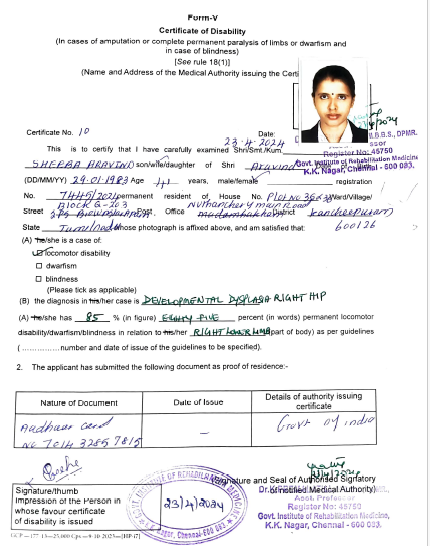 Form-V
Certificate of Disability
(In cases of amputation or complete permanent paralysis of limbs or dwarfism and
in case of blindness)
[See rule 18(1)]
(Name and Address of the Medical Authority issuing the Certi
M.B.B.S., DPMR.
Certificate No. 10 Date: 23-4-2024
Register No: 45750
This is to certify that I have carefully examined Shri/Smt./Kum.
Govt. Institute of Rehabilitation Medicine
K.K. Nagar, Chennai - 600 083.
SHEEBA ARAVIND son/wife/daughter of Shri Aravind
(DD/MM/YY) 29.01.1983 Age 41 years, male/female registration
No. 7445/2021 permanent resident of House No. Plot No 36 Ward/Village/
Block G-203 main Road
Street Post Office Madambakkam District kancheepuram
State Tamilnadu whose photograph is affixed above, and am satisfied that: 600126
(A) he/she is a case of:
locomotor disability
dwarfism
blindness
(Please tick as applicable)
(B) the diagnosis in his/her case is DEVELOPMENTAL DYSPLASIA RIGHT HIP
(A) he/she has 85 % (in figure) EIGHTY FIVE percent (in words) permanent locomotor
disability/dwarfism/blindness in relation to his/her RIGHT LOWER LIMB (part of body) as per guidelines
(...............number and date of issue of the guidelines to be specified).
2. The applicant has submitted the following document as proof of residence:-
Nature of Document Date of Issue Details of authority issuing
certificate
Aadhaar card
No 7014 3285 7815 – Govt of india
(Signature and Seal of Authorised Signatory
of notified Medical Authority)
Signature/thumb
Impression of the Person in
whose favour certificate
of disability is issued
23/4/2024
Asst. Professor
Register No: 45750
Govt. Institute of Rehabilitation Medicine,
K.K. Nagar, Chennai - 600 083.